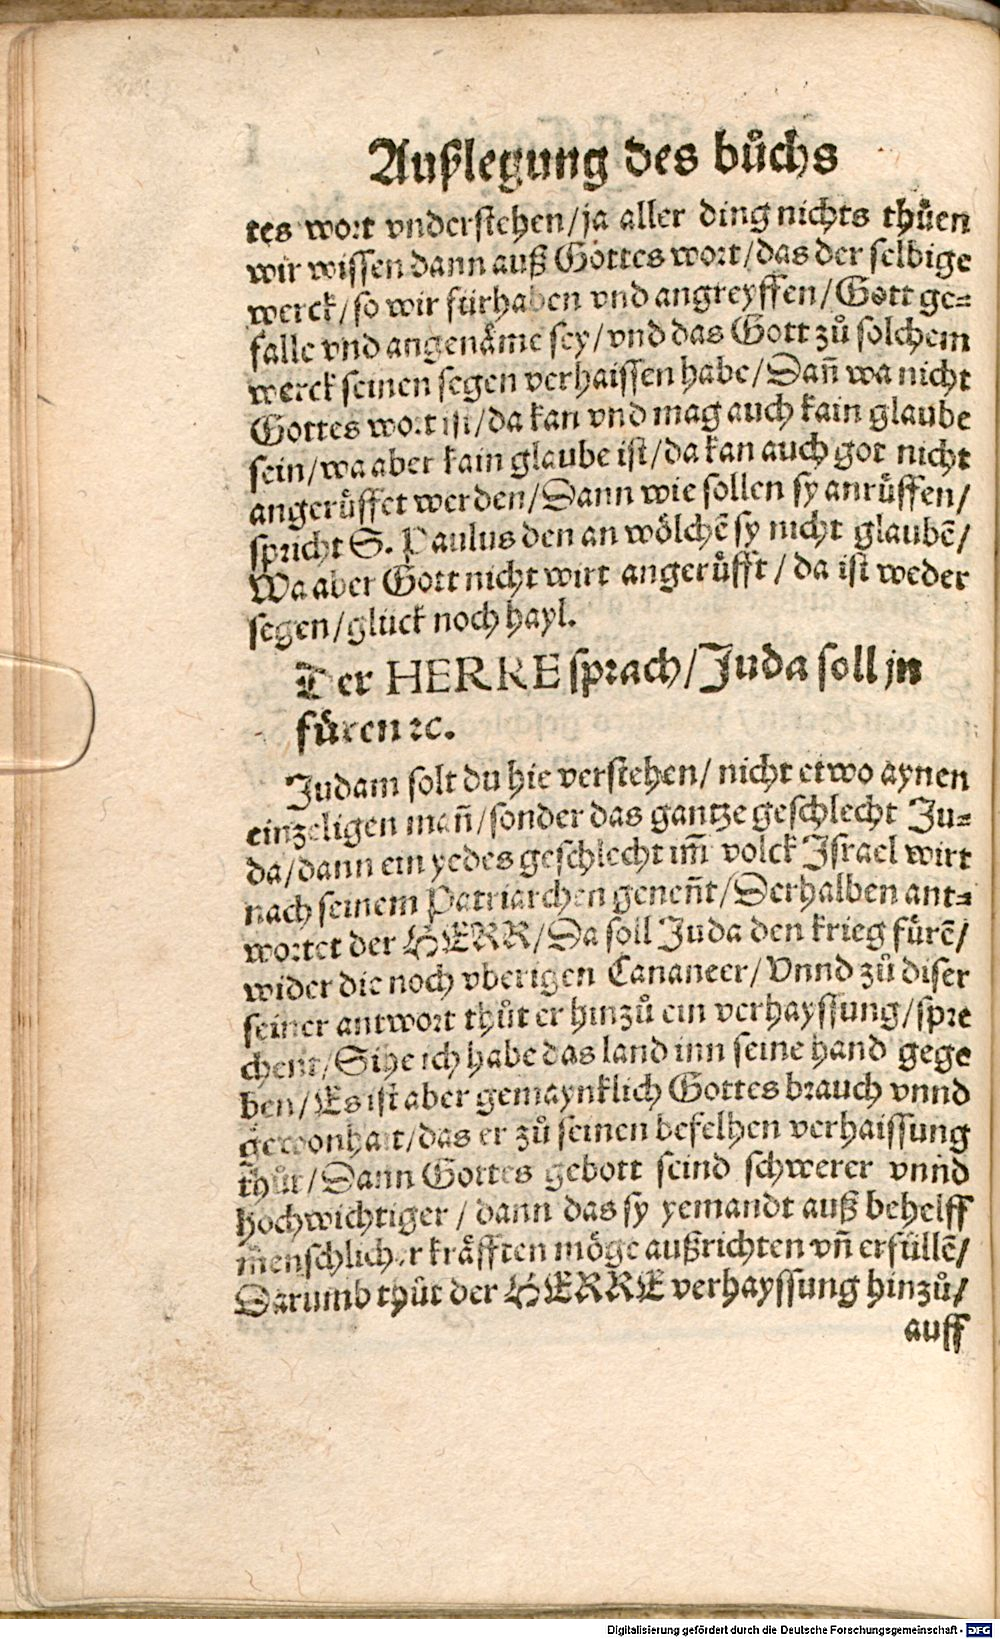 Außlegung des bůchs
tes wort vnderstehen/ja aller ding nichts thůen
wir wissen dann auß Gottes wort/das der selbige
werck/so wir fürhaben vnd angreyffen/Gott ge-
falle vnd angenäme sey/vnd das Gott zů solchem
werck seinen segen verhaissen habe/Dañ wa nicht
Gottes wort ist/da kan vnd mag auch kain glaube
sein/wa aber kain glaube ist/da kan auch got nicht
angerůffet werden/Dann wie sollen sy anrůffen/
spricht S. Paulus den an wölchẽ sy nicht glaubẽ/
Wa aber Gott nicht wirt angerůfft/da ist weder
segen/glück noch hayl.
Der HERRE sprach/Juda soll jn
füren ꝛc.
Judam solt du hie verstehen/nicht etwo aynen
einzeligen mañ/sonder das gantze geschlecht Ju-
da/dann ein yedes geschlecht im̃ volck Israel wirt
nach seinem Patriarchen geneñt/Derhalben ant-
wortet der HERR/Da soll Juda den krieg fürẽ/
wider die noch vberigen Cananeer/Vnnd zů diser
seiner antwort thůt er hinzů ein verhayssung/spre
chent/Sihe ich habe das land inn seine hand gege
ben/Es ist aber gemaynklich Gottes brauch vnnd
gewonhait/das er zů seinen befelhen verhaissung
thůt/Dann Gottes gebott seind schwerer vnnd
hochwichtiger/dann das sy yemandt auß behelff
menschlicher kräfften möge außrichten vñ erfüllẽ/
Darumb thůt der HERRE verhayssung hinzů/
auff
Digitalisierung gefördert durch die Deutsche Forschungsgemeinschaft - DFG